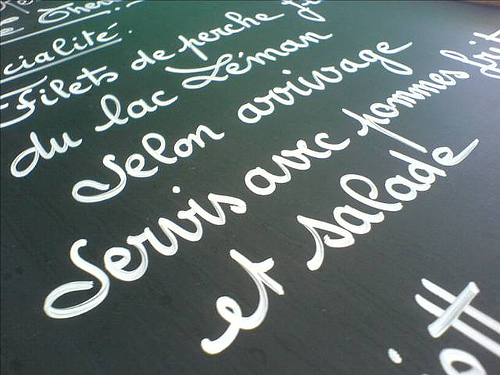 cialité.
Filets de perche
du lac Léman
Selon arrivage
Servis avec pommes
et salade